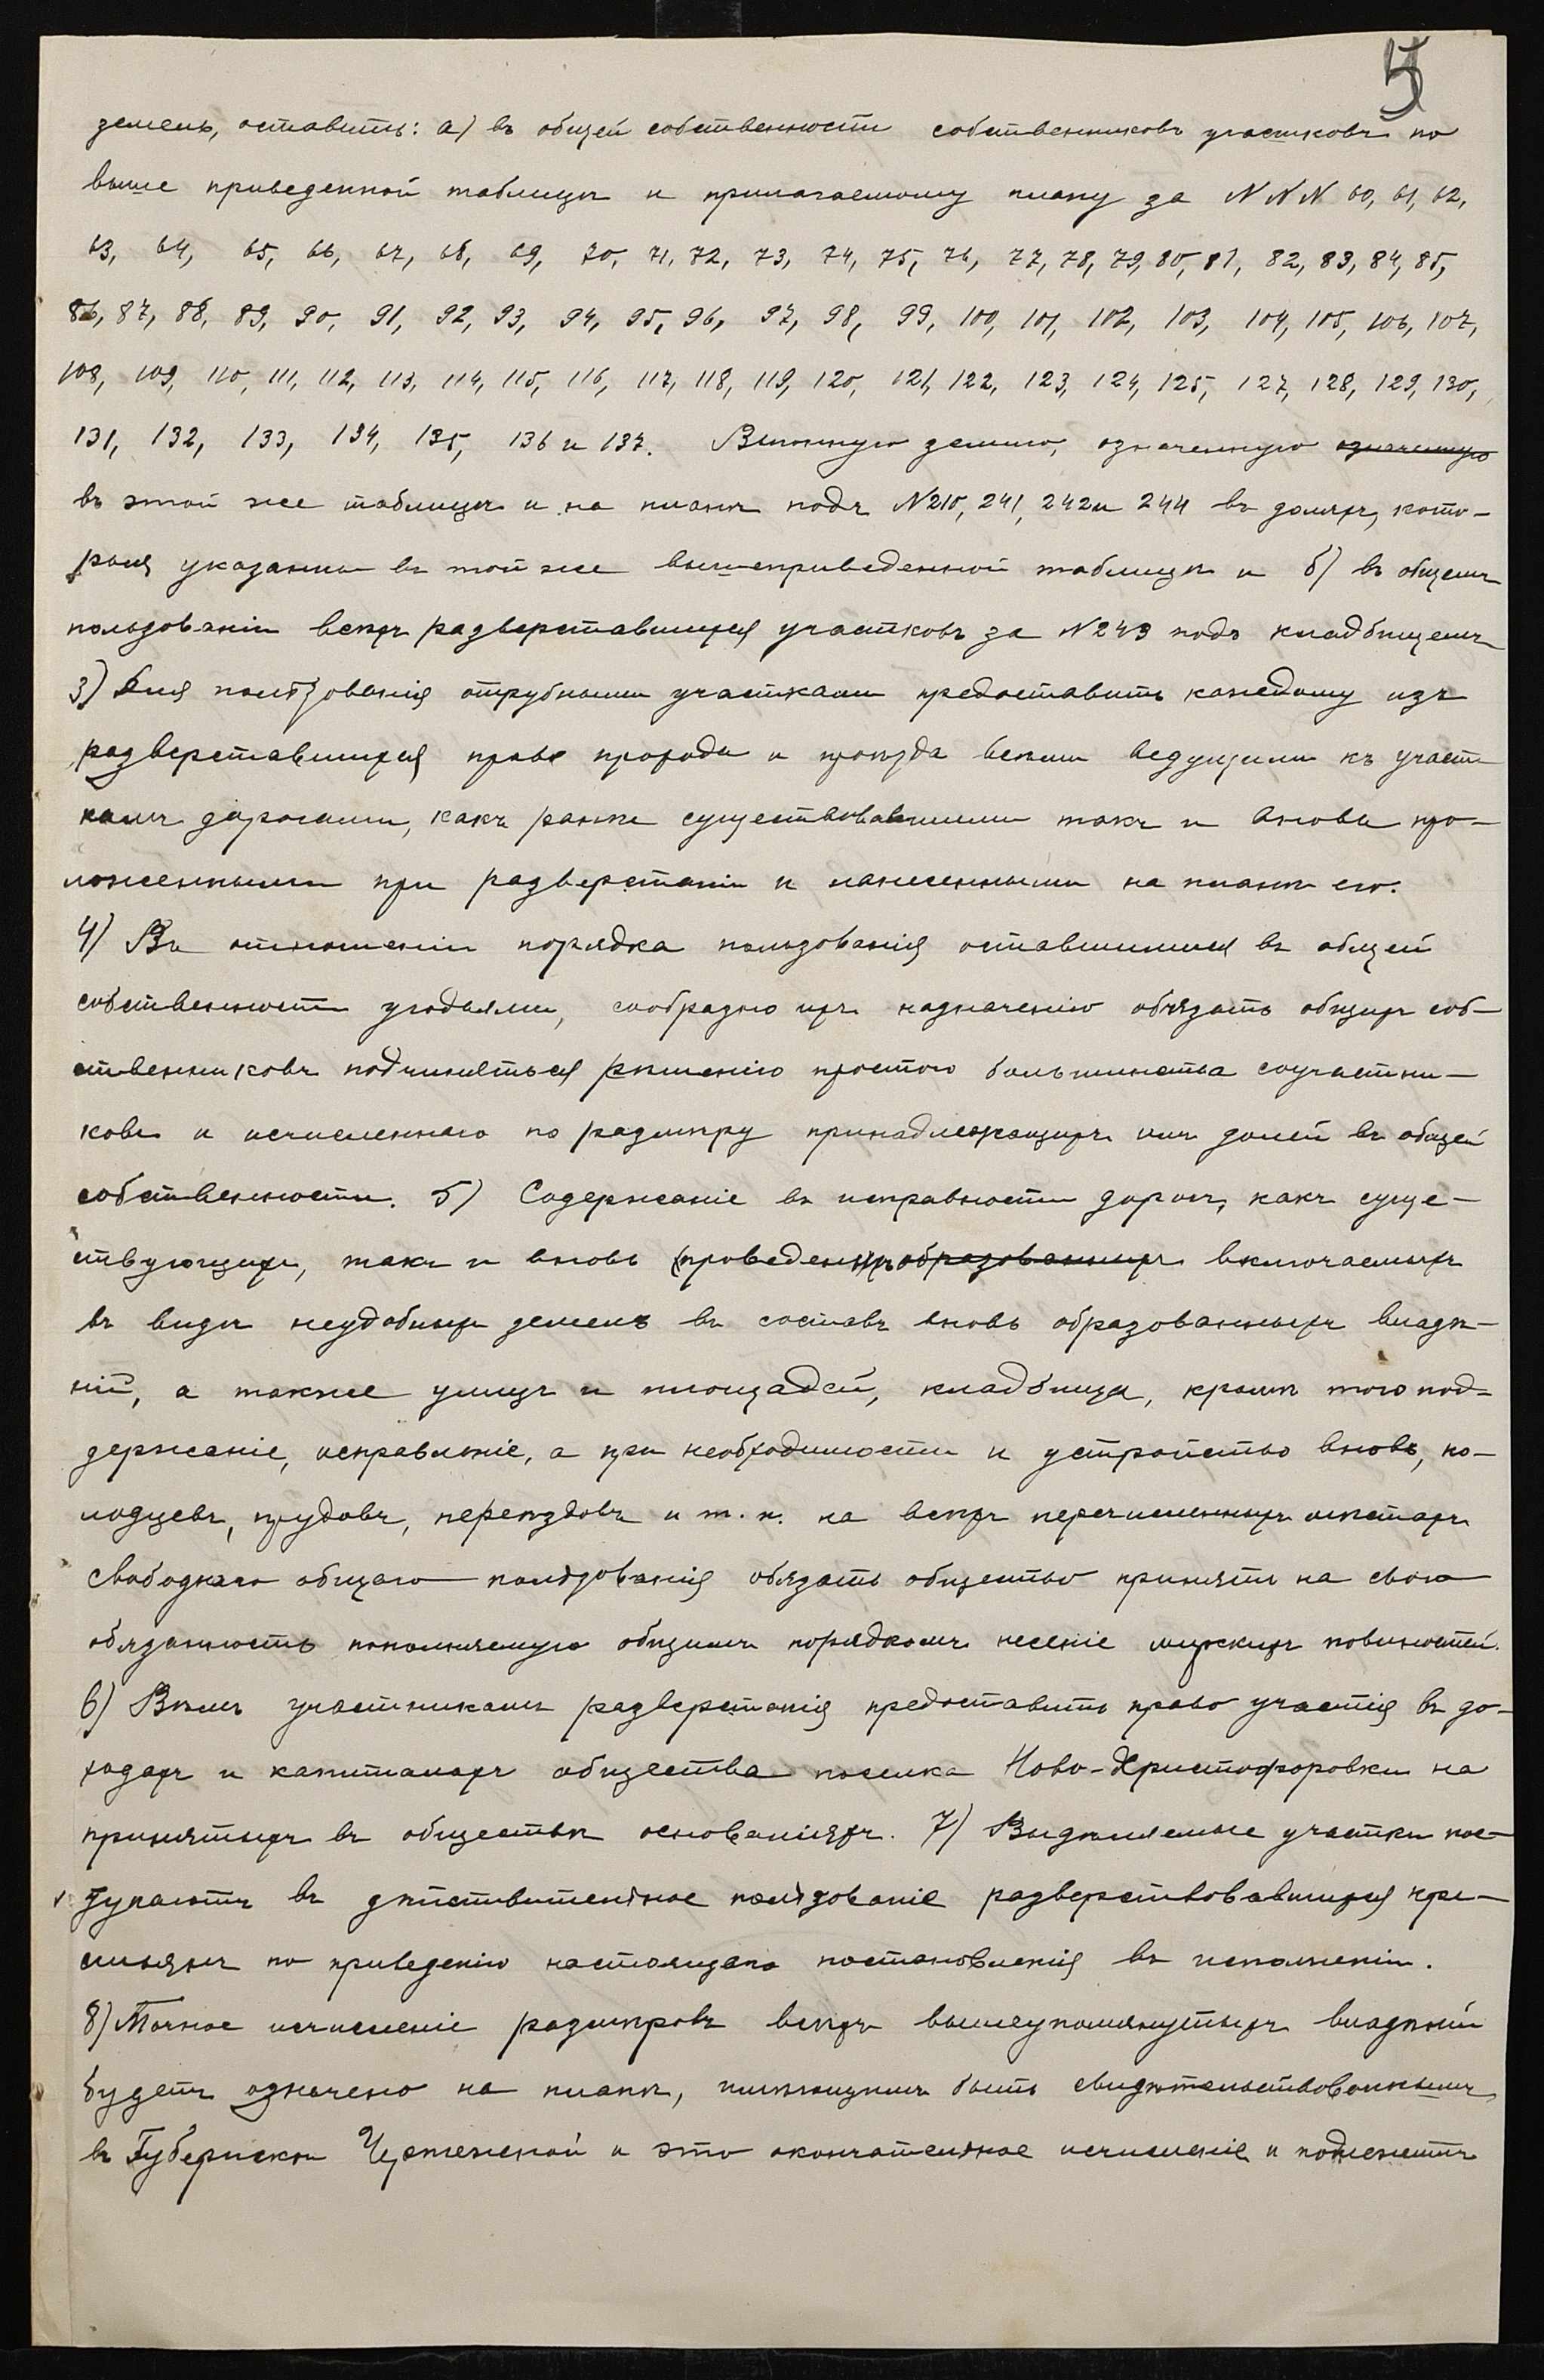 5
земель, оставить: а) въ общей собственности собственниковъ участковъ по
выше приведенной таблицѣ и прилагаемому плану за №№№ 60, 61, 62,
63, 64, 65, 66, 67, 68, 69, 70, 71, 72, 73, 74, 75, 76, 77, 78, 79, 80, 81, 82, 83, 84, 85,
86, 87, 88, 89, 90, 91, 92, 93, 94, 95, 96, 97, 98, 99, 100, 101, 102, 103, 104, 105, 106, 107,
108, 109, 110, 111, 112, 113, 114, 115, 116, 117, 118, 119, 120, 121, 122, 123, 124, 125, 127, 128, 129, 130,
131, 132, 133, 134, 135, 136 и 137. землю, означенную означенную
въ этой же таблицѣ и на планѣ подъ № 210, 241, 242 и 244 въ доляхъ, кото-
рыя указаны въ той же вышеприведенной таблицѣ и б) въ общемъ
пользованіи всѣхъ разверставшихся участковъ за № 243 подъ кладбищемъ
3) Для пользованія отрубными участками предоставить каждому изъ
разверставшихся право прохода и проѣзда всѣми ведущими къ участ-
камъ дорогами, какъ ранѣе существовавшими такъ и вновь про-
ложенными при разверстаніи и нанесенными на планѣ его.
4) Въ отношеніи порядка пользованія оставшимися въ общей
собственности угодьями, сообразно ихъ назначенію обязать общихъ соб-
ственниковъ подчиняться рѣшенію простого большинства соучастни-
ковъ и исчисленнаго по размѣру принадлежащихъ имъ долей въ общей
собственности. 5) Содержаніе въ исправности дорогъ, какъ суще-
ствующихъ, такъ и вновь проведенныхъ образованныхъ включаемыхъ
въ видѣ неудобныхъ земель въ составъ вновь образованныхъ владѣ-
ній, а также улицъ и площадей, кладбища, кромѣ того под-
держаніе, исправленіе, а при необходимости и устройство вновь, ко-
лодцевъ, прудовъ, переѣздовъ и т. п. на всѣхъ перечисленныхъ мѣстахъ
свободнаго общаго пользованія обязать общество принять на свою
обязанность пополняемую общимъ порядкомъ несеніе мірскихъ повинностей.
6) Всѣмъ участникамъ разверстанія предоставить право участія въ до-
ходахъ и капиталахъ общества поселка Ново-Христофоровки на
принятыхъ въ обществѣ основаніяхъ. 7) Выдѣляемые участки пос-
тупаютъ въ дѣйствительное пользованіе разверствовавшихся кре-
стьянъ по приведенію настоящаго постановленія въ исполненіи.
8) Точное исчисленіе размѣровъ всѣхъ вышеупомянутыхъ владѣній
будетъ означено на планѣ, имѣющимъ быть свидѣтельствованнымъ
въ Губернской Чертежной и это окончательное исчисленіе и подлежитъ